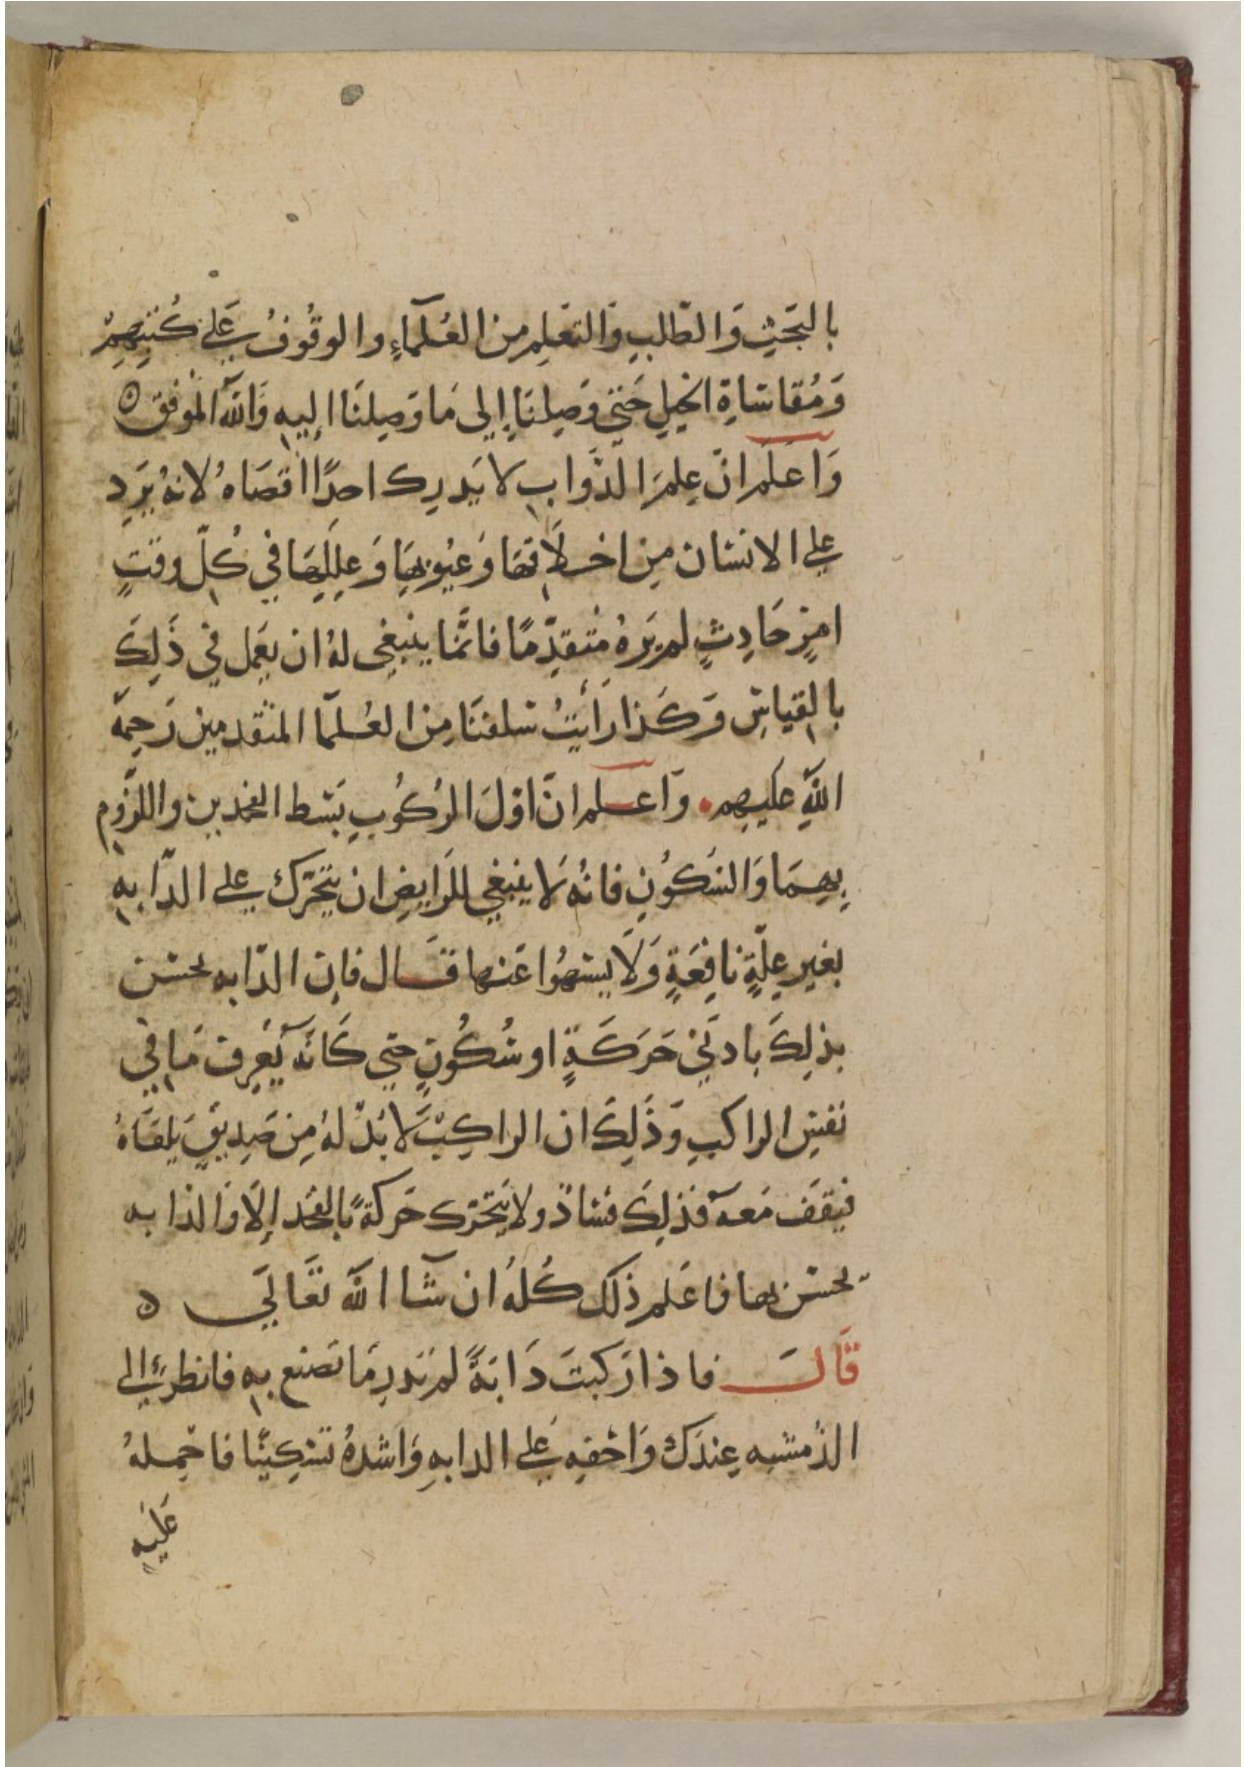 بالبَحثِ وَالطَلبِ وَالتَعَلمِ مِنَ العُلَمَآءِ والوقُوفُ عَلى كُتبِهِمْ
وَمُقاسَاةِ الخَيلِ حَتي وَصِلنَا إلى مَا وَصِلنَا اليهِ وَالله الموفق
وَاعلَم انّ عِلمَ الدَّوابِ لا يَدرِك احدًا اقصَاهُ لانهُ يَرَد
على الانسَان مِن اخلَاقهَا وَعيُوبهَا وَعِلَلِهَا في كُلّ وقتٍ
امرٍ حَادِثٍ لم يَرهُ مُتقدِّمًا فانمَّا ينبغي لهُ ان يَعمل في ذَلِكَ
بالقِياسِ وَكَذا رَأيتُ سَلفنَا مِن العُلمّا المتقدمين رَحمِة
اللهِ عليهِم وَاعلم انّ اوّلَ الرُكُوبِ بَسَط الفخدين واللزُوم
بِهِمَا وَالسَكُونِ فانهُ لَا ينبَغي للرَايضِ ان يتحَرّك على الدّابهِ
بغيرِ عِلّةٍ نافِعَةٍ وَلَا يسَهُوا عَنها قَال فاِن الدّابه تحسّ
بذلِكَ بادنَي حَرَكَةٍ او سُكُونٍ حتي كَانهَّ يَعرِف مَا في
نفسِ الراكبِ وَذَلِكَ ان الراكِبَ لَا بُدّ لهُ مِن صَدِيقٍ يَلقَاهُ
فيَقفَ مَعهَ فذلِكَ فسَادٌ ولا يَتحَرّك حَركةً بالفخد إلَا وَالدابه
تحسّ بها فاعَلم ذلك كُلهُ ان شَآ الله تعَالَي ٥
قَالَ فاذا ركبتَ دَابَةً لم تَدرِ مَا تصنع بهِ فانظر إلى
الدُمشه عِندَك وَاخفِه عَلى الدابهِ وَاشدهُ تسَكِينًا فاحمِلهُ
عَليهِ